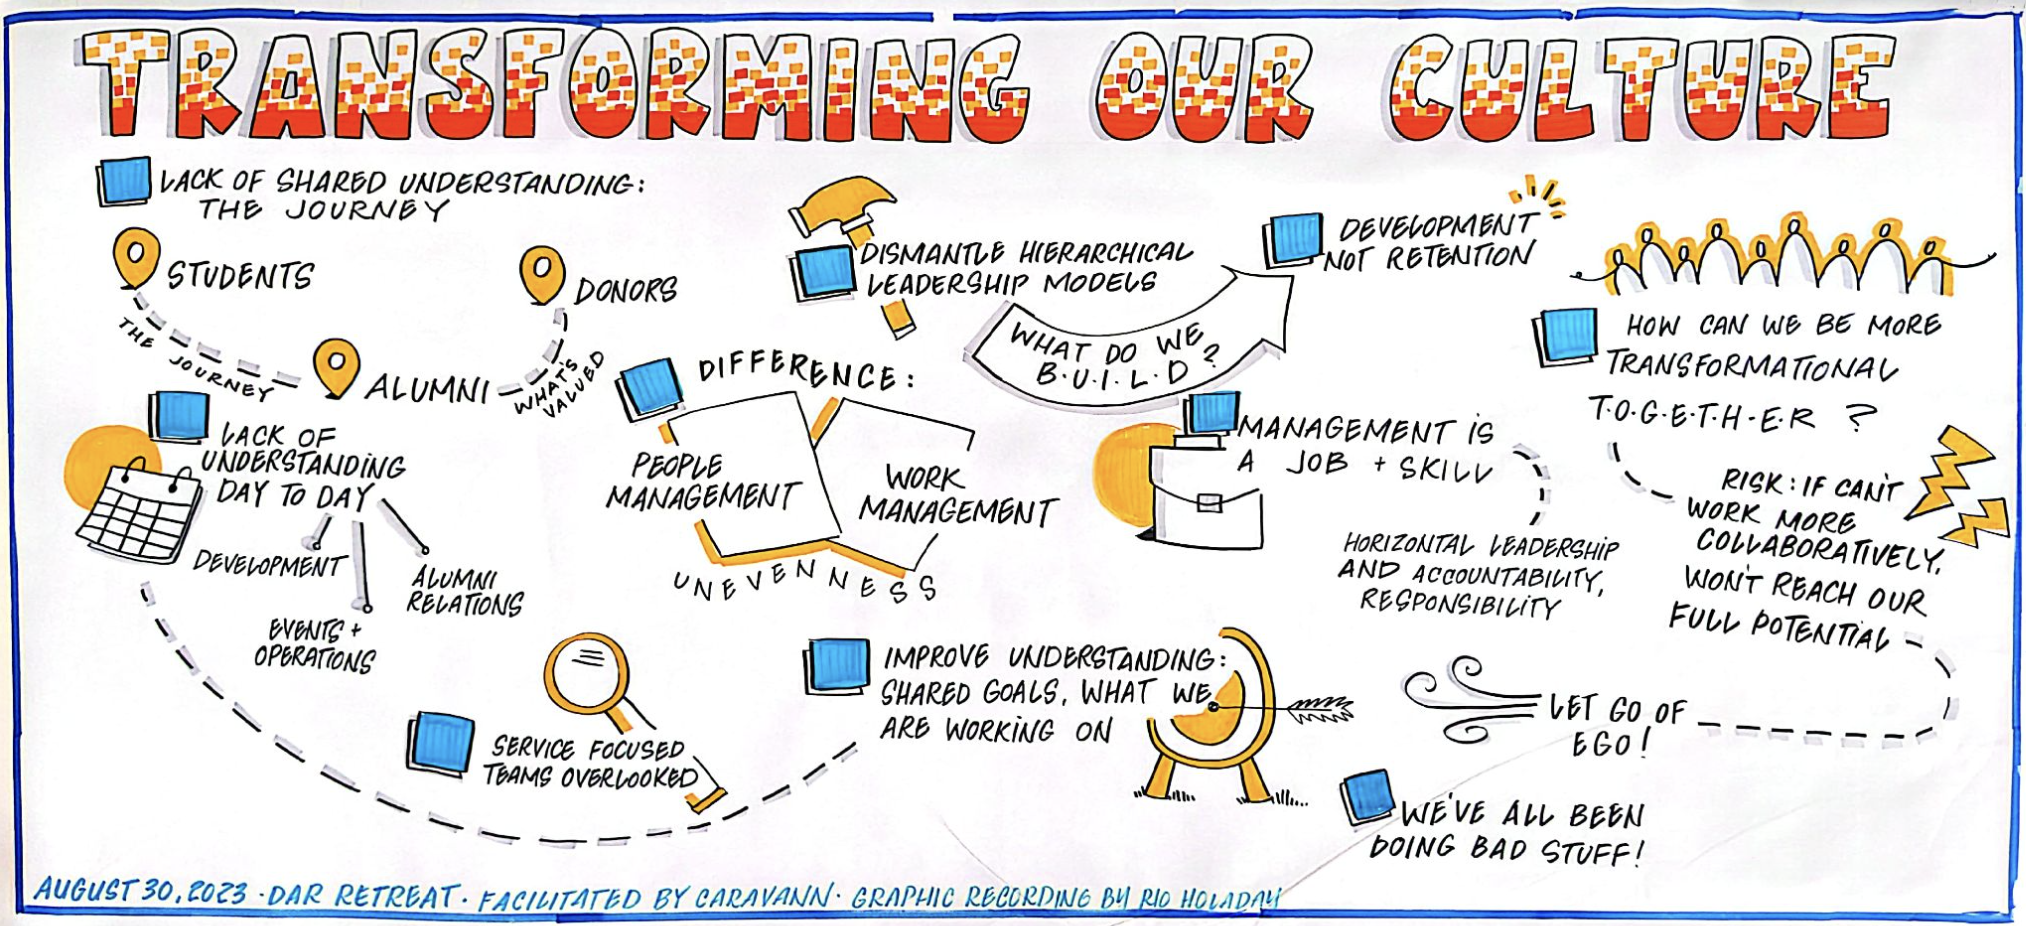 TRANSFORMING OUR CULTURE
LACK OF SHARED UNDERSTANDING:
THE JOURNEY
STUDENTS
THE JOURNEY
ALUMNI
WHAT'S
VALUED
DONORS
LACK OF
UNDERSTANDING
DAY TO DAY
DEVELOPMENT
EVENTS +
OPERATIONS
ALUMNI
RELATIONS
DISMANTLE HIERARCHICAL
LEADERSHIP MODELS
WHAT DO WE
B·U·I·L·D?
DEVELOPMENT
NOT RETENTION
DIFFERENCE:
PEOPLE
MANAGEMENT
WORK
MANAGEMENT
UNEVENNESS
MANAGEMENT IS
A JOB + SKILL
HORIZONTAL LEADERSHIP
AND ACCOUNTABILITY,
RESPONSIBILITY
HOW CAN WE BE MORE
TRANSFORMATIONAL
T·O·G·E·T·H·E·R ?
RISK: IF CAN'T
WORK MORE
COLLABORATIVELY,
WON'T REACH OUR
FULL POTENTIAL
LET GO OF
EGO!
SERVICE FOCUSED
TEAMS OVERLOOKED
IMPROVE UNDERSTANDING:
SHARED GOALS, WHAT WE
ARE WORKING ON
WE'VE ALL BEEN
DOING BAD STUFF!
AUGUST 30, 2023 · DAR RETREAT · FACILITATED BY CARAVANN · GRAPHIC RECORDING BY RIO HOLADAY